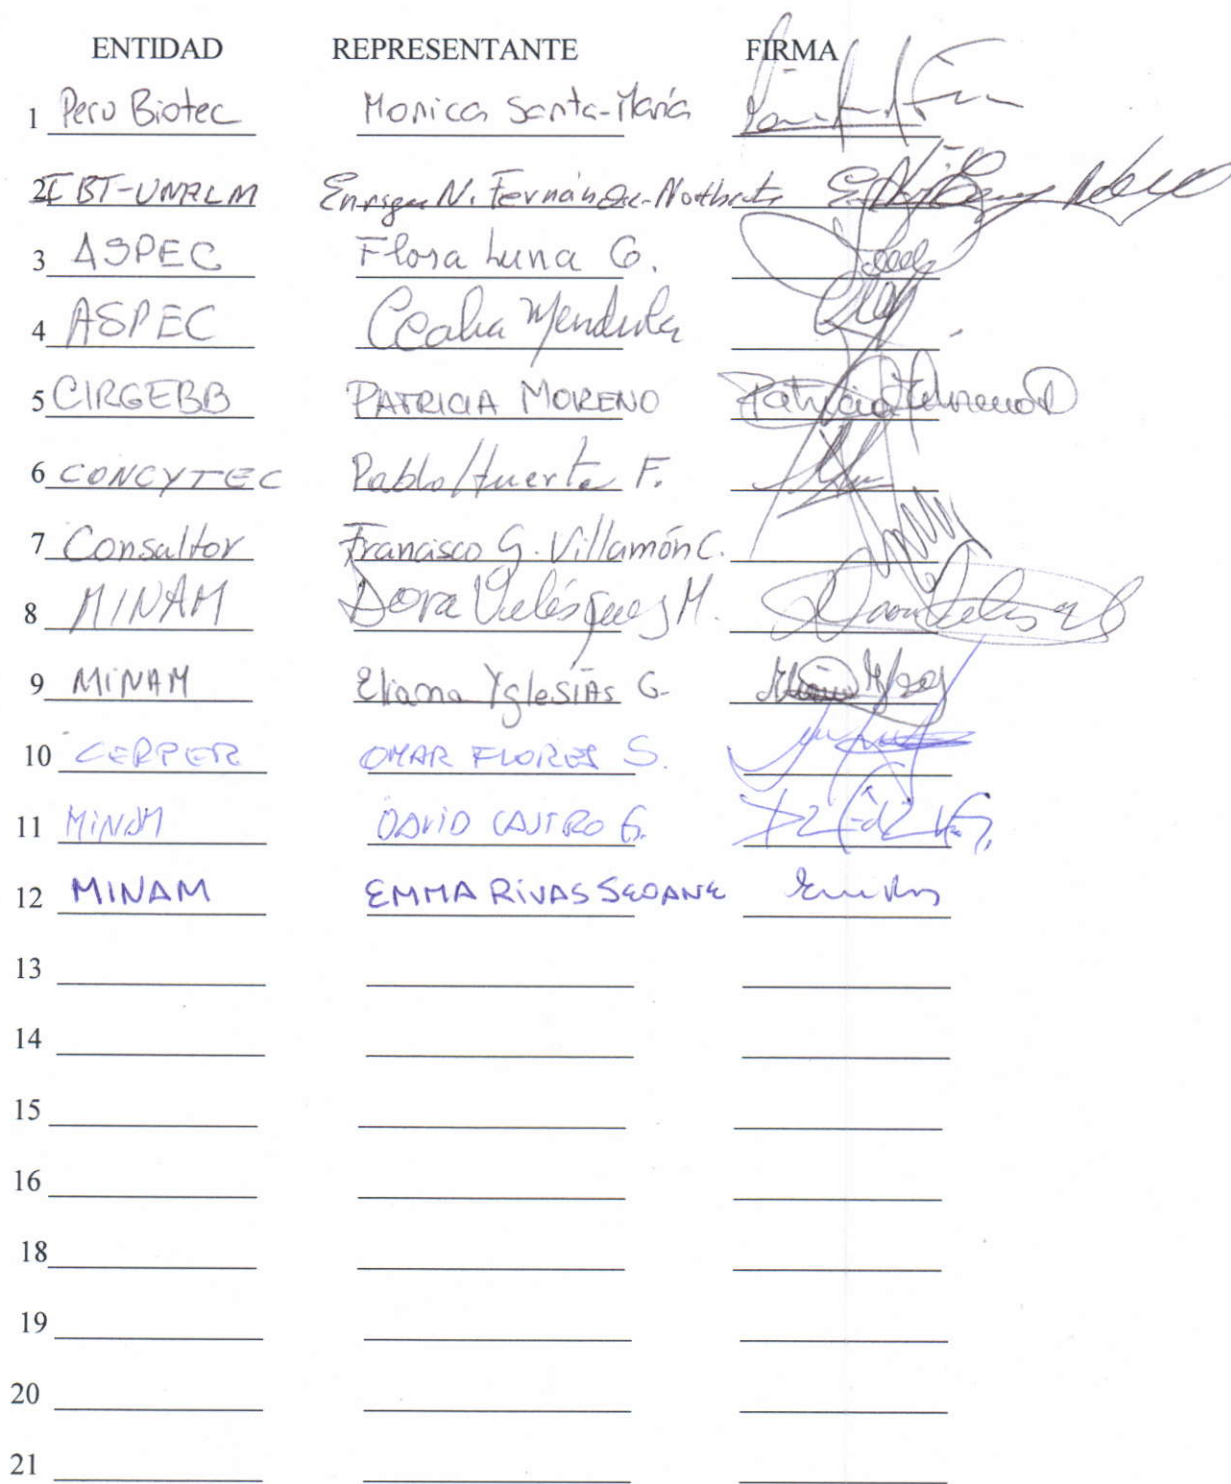 ENTIDAD REPRESENTANTE FIRMA
1 Peru Biotec Monica Santa-María
2 IBT-UNALM Enrique N. Fernández-Northcote
3 ASPEC Flora Luna G.
4 ASPEC Cecilia Mendiola
5 CIRGEBB PATRICIA MORENO Patricia Moreno D
6 CONCYTEC Pablo Huerta F.
7 Consultor Francisco G. Villamón C.
8 MINAM Dora Velásquez M.
9 MINAM Eliana Yglesias G.
10 CERPER OMAR FLORES S.
11 MINAM DAVID CASTRO G.
12 MINAM EMMA RIVAS SEOANE
13
14
15
16
18
19
20
21